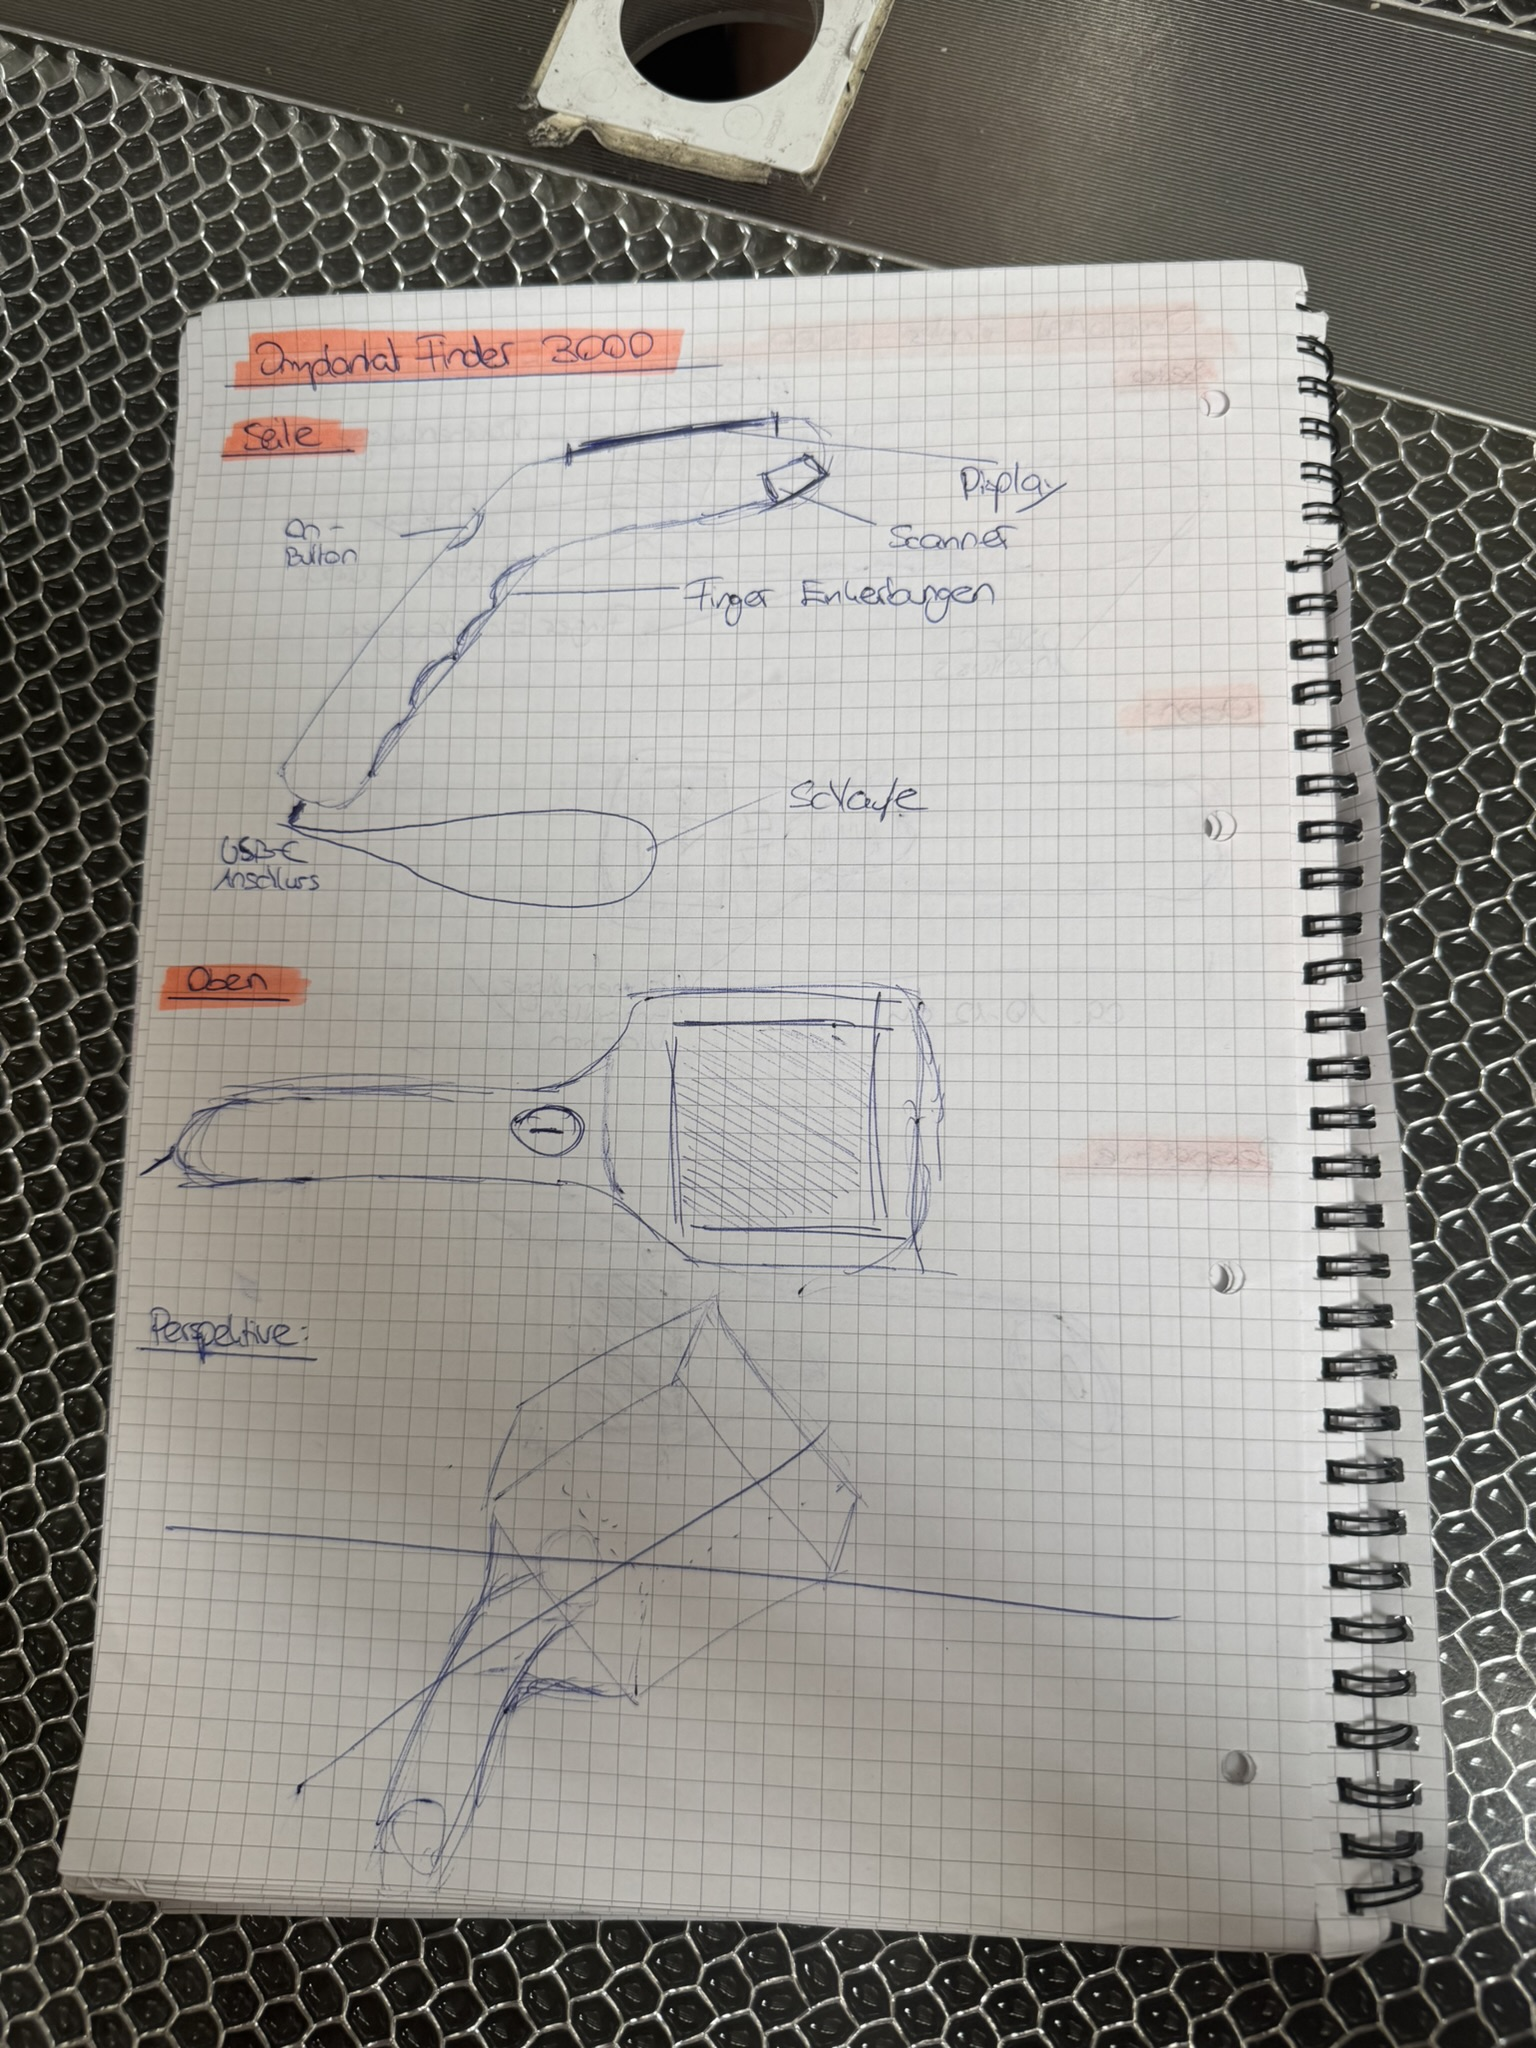 Implantat Finder 3000
Seite
Display
On-
Button
Scanner
Finger Einkerbungen
Schlaufe
USB-C
Anschluss
Oben
Perspektive: